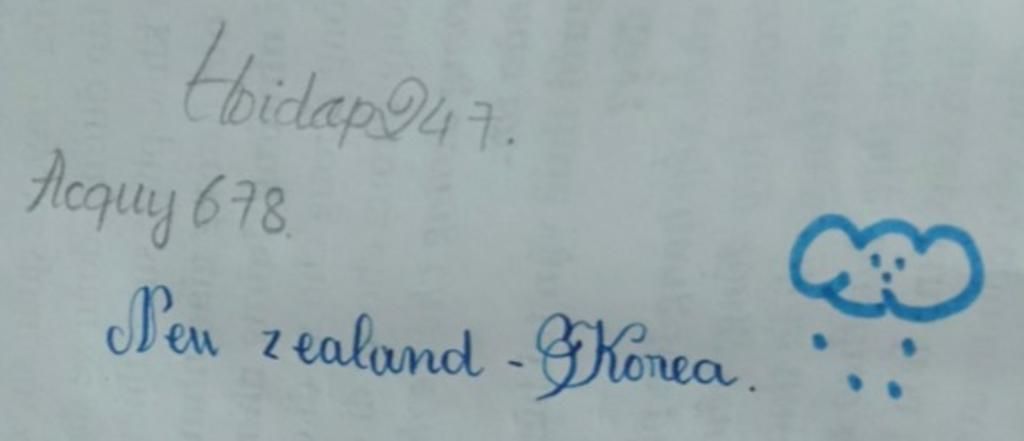 Hoidap247.
Acquy 678.
Neu zealand - Korea.